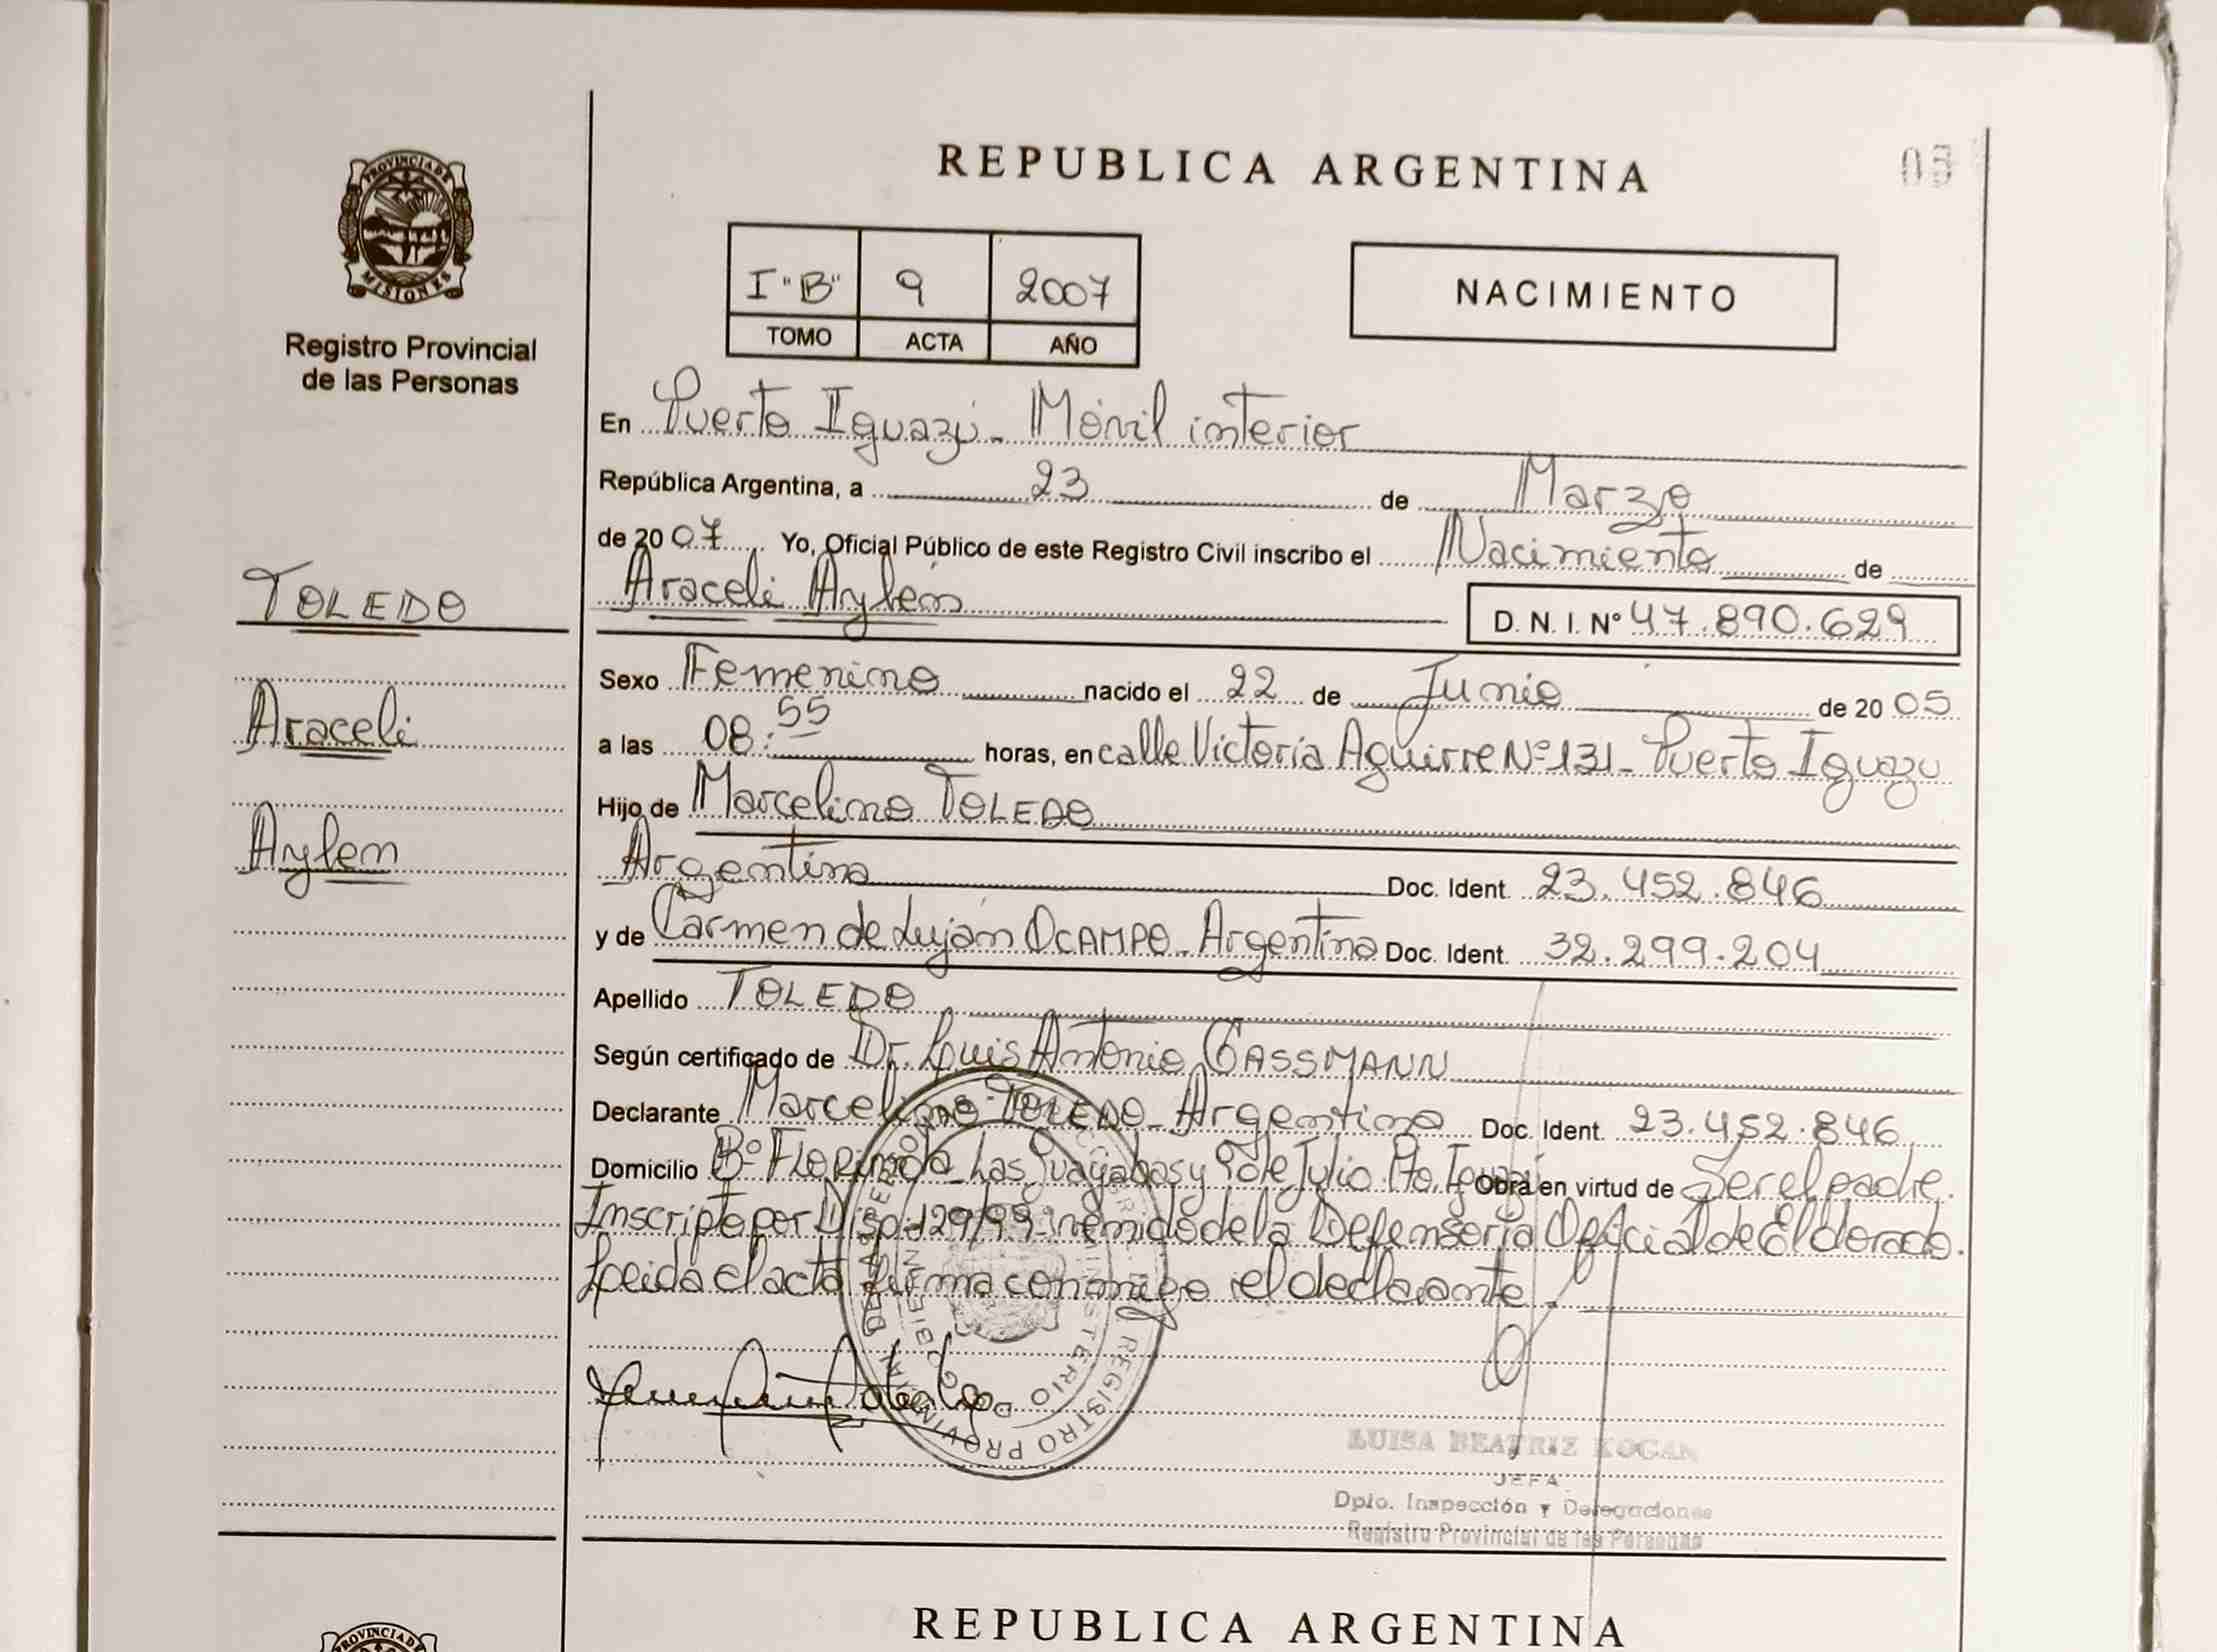 REPUBLICA ARGENTINA
PROVINCIA DE MISIONES
Registro Provincial
de las Personas
I "B" 9 2007
TOMO ACTA AÑO
NACIMIENTO
En Puerto Iguazú - Móvil interior
República Argentina, a 23 de Marzo
de 2007 Yo, Oficial Público de este Registro Civil inscribo el Nacimiento de
TOLEDO
Araceli
Aylem
Araceli Aylém D. N. I. Nº 47.890.629
Sexo Femenino nacido el 22 de Junio de 2005
a las 08:55 horas, en calle Victoria Aguirre Nº 131 - Puerto Iguazu
Hijo de Marcelino TOLEDO
Argentina Doc. Ident. 23.452.846
y de Carmen de Luján OCAMPO - Argentina Doc. Ident. 32.299.204
Apellido TOLEDO
Según certificado de Dr. Louis Antonio GASSMANN
Declarante Marcelino TOLEDO - Argentino Doc. Ident. 23.452.846
Domicilio Bº Florinda - Las Guayabas y 9 de Julio. Pto. Iguazú Obra en virtud de Ser el padre.
Inscripto por Disp. 129/99 de la Defensoría Oficial de Eldorado.
Leida el acta firma conmigo el declarante.
REGISTRO PROVINCIAL DE LAS PERSONAS
MINISTERIO DE GOBIERNO
LUISA BEATRIZ KOGAN
JEFA
Dpto. Inspección y Delegaciones
Registro Provincial de las Personas
REPUBLICA ARGENTINA
PROVINCIA DE